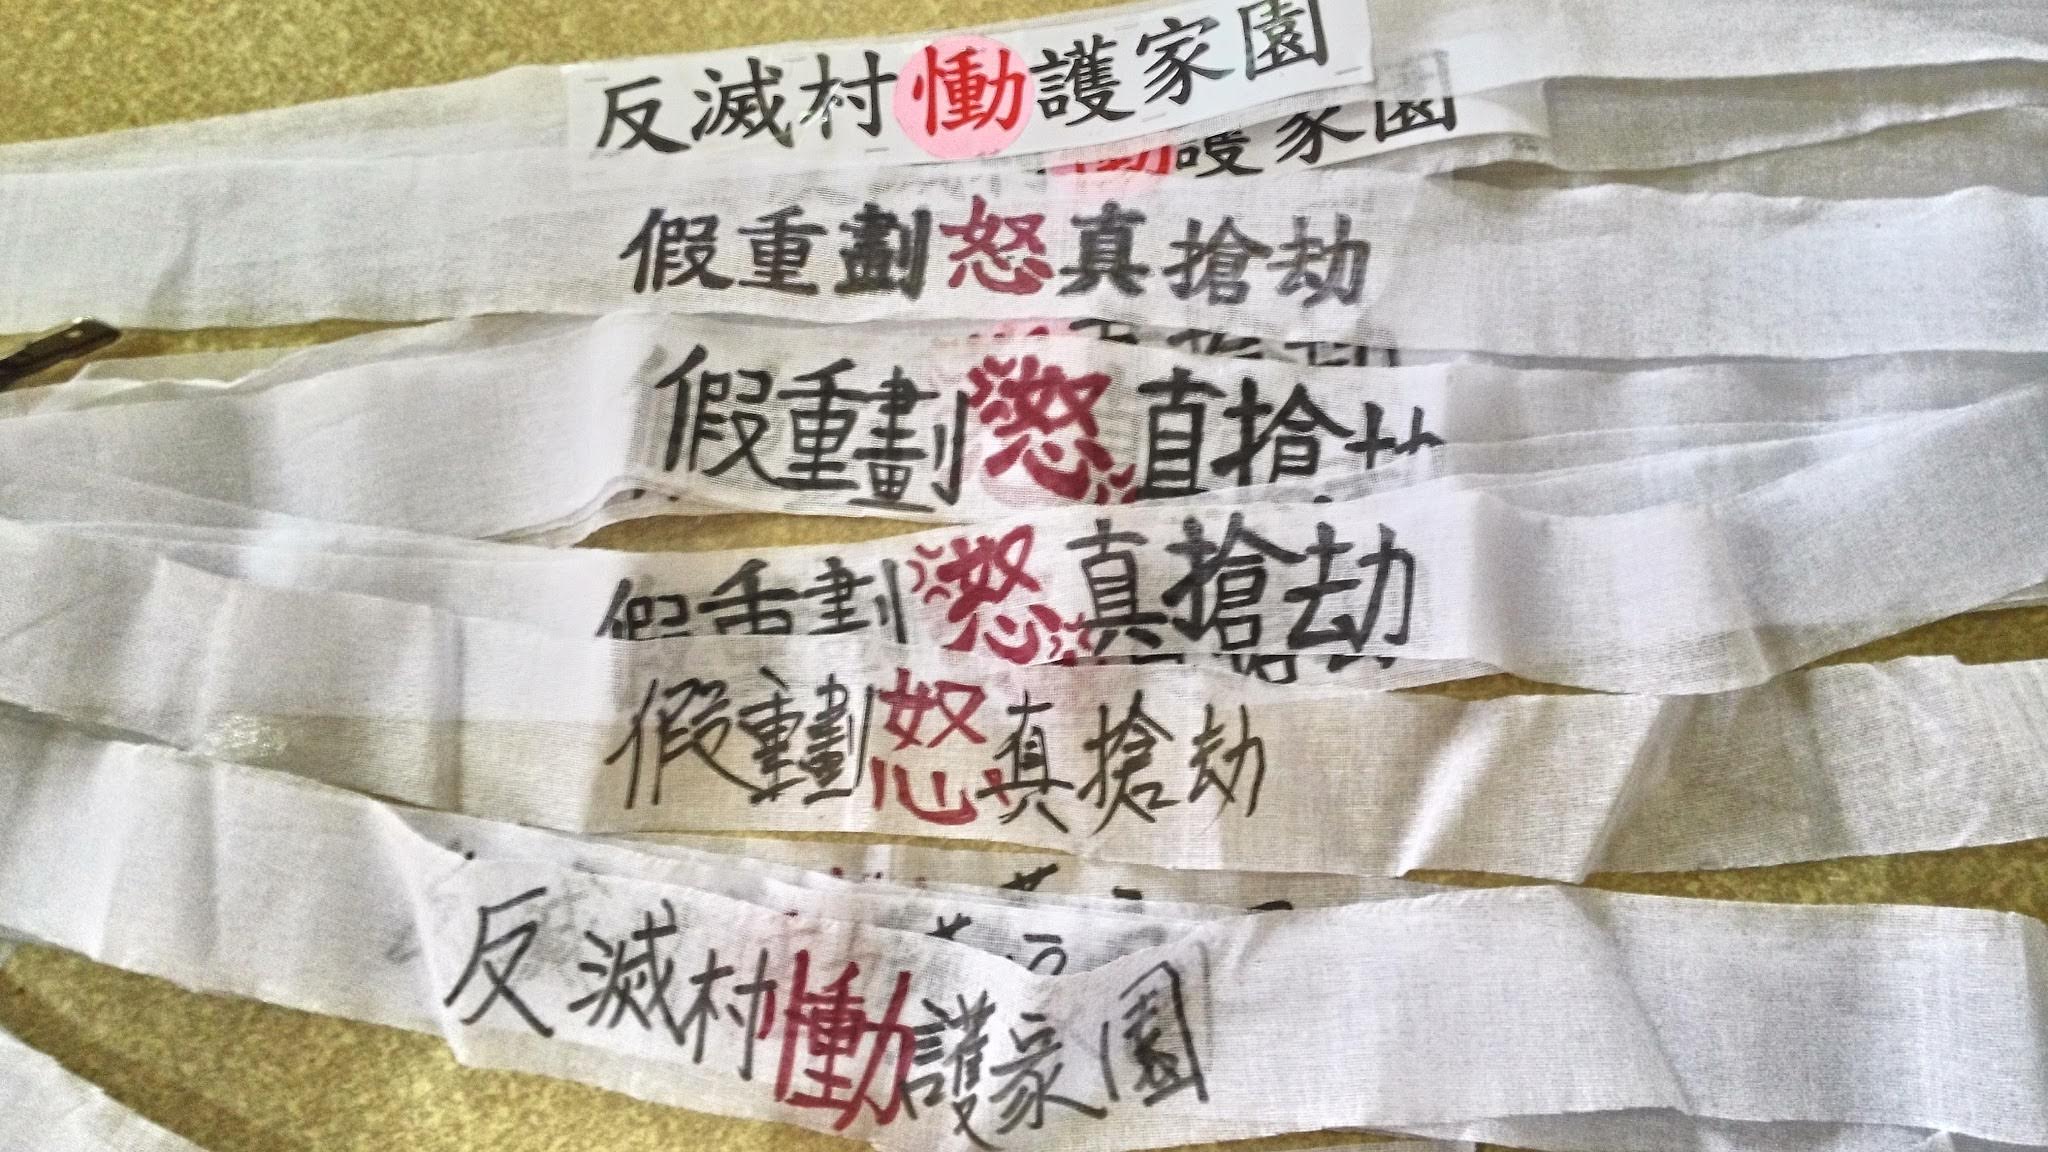 反滅村慟護家園
慟護家園
假重劃怒真搶劫
假重劃怒真搶劫
假重劃怒真搶劫
假重劃怒真搶劫
反滅村慟護家園